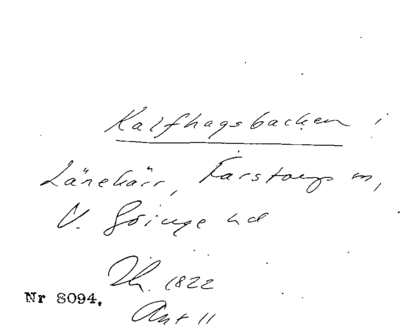 Kalfhagsbacken i
Länekärr, Farstorps sn,
V. Göinge hd
Jh. 1822
Ant 11
Nr 8094.